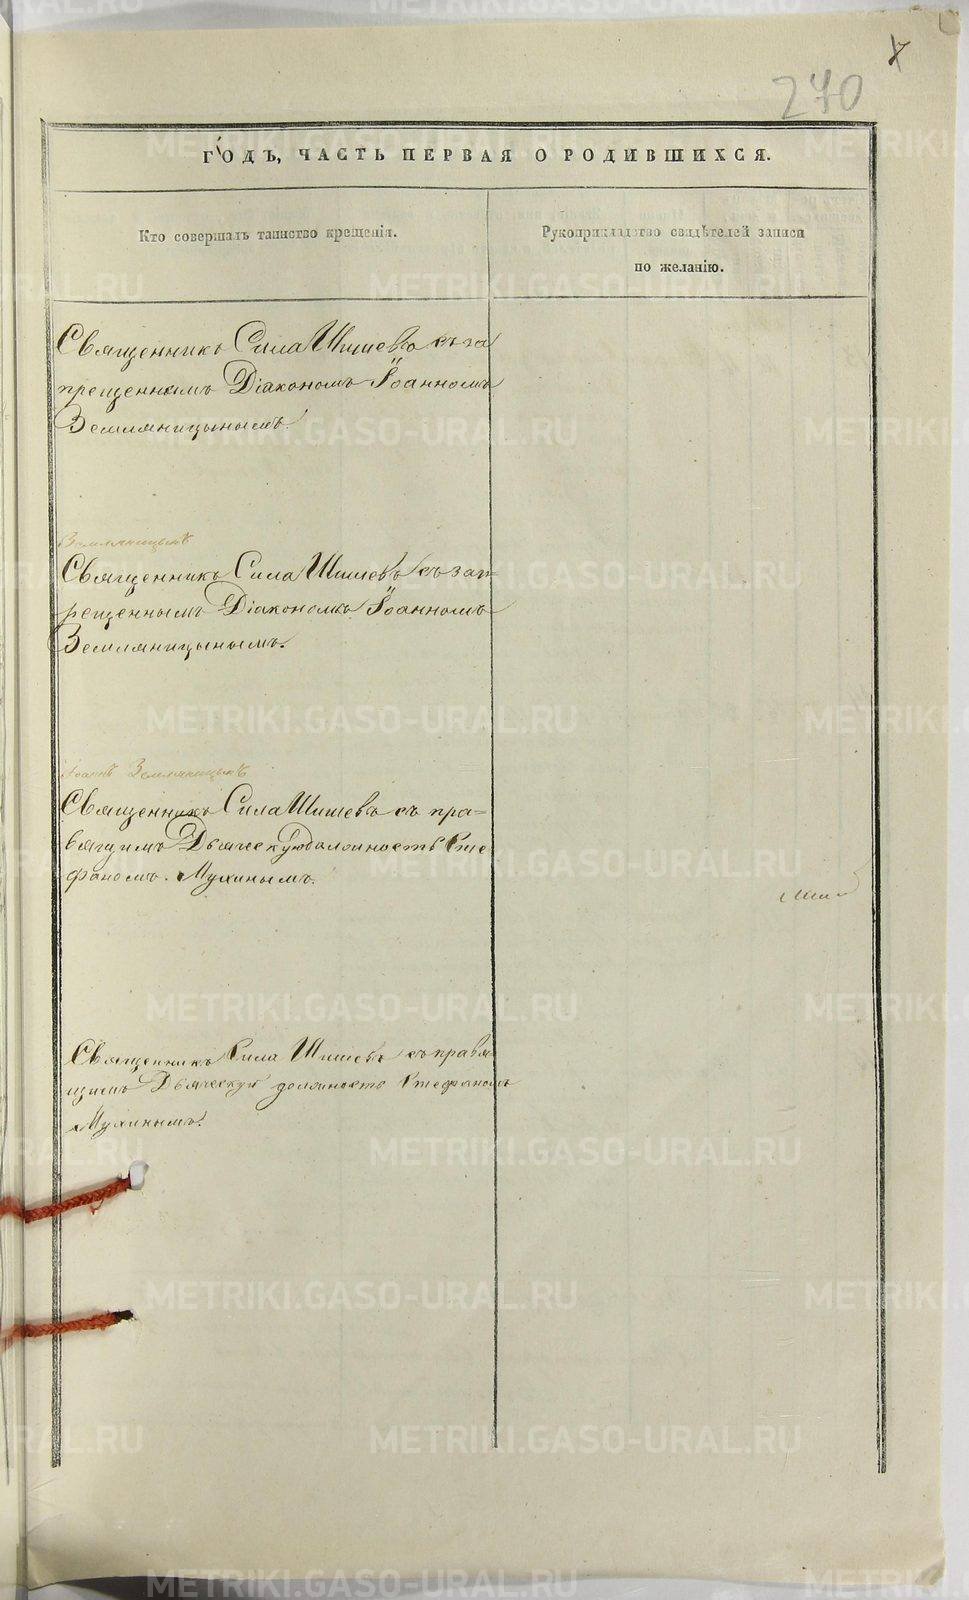 7
270
ГОДЪ, ЧАСТЬ ПЕРВАЯ О РОДИВШИХСЯ.
Кто совершалъ таинство крещенія.
Рукоприкладство свидѣтелей записи
по желанію.
Священникъ Сила Шишевъ съ за
прещеннымъ Діакономъ Іоанномъ
Земляницынымъ.
Земляницынъ
Священникъ Сила Шишевъ съ зап-
рещеннымъ Діакономъ Іоанномъ
Земляницынымъ.
Іоаннъ Земляницынъ
Священникъ Сила Шишевъ съ пра-
вящимъ Дьяческую должность Сте
фаномъ Мухинымъ.
Священникъ Сила Шишевъ съ правя
щимъ Дьяческую должность Стефаномъ
Мухинымъ.
METRIKI.GASO-URAL.RU